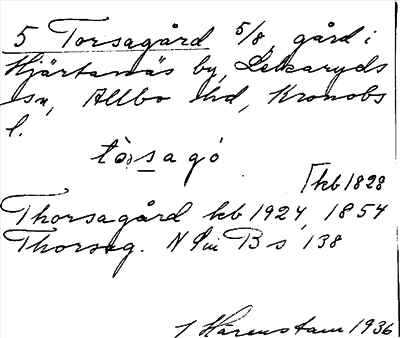 5 Torsagård 5/8, gård i
Hjärtanäs by, Lekaryds
sn, Allbo hd, Kronobs
l.
tòrsagó
⌈kb 1828
Thorsagård kb 1924, 1854
Thorsag. N i B s 138
Härenstam 1936